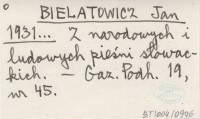 BIELATOWICZ Jan
1931... Z narodowych i
ludowych pieśni słowac-
kich. — Gaz. Podh. 19,
nr 45.
BT1004/0996